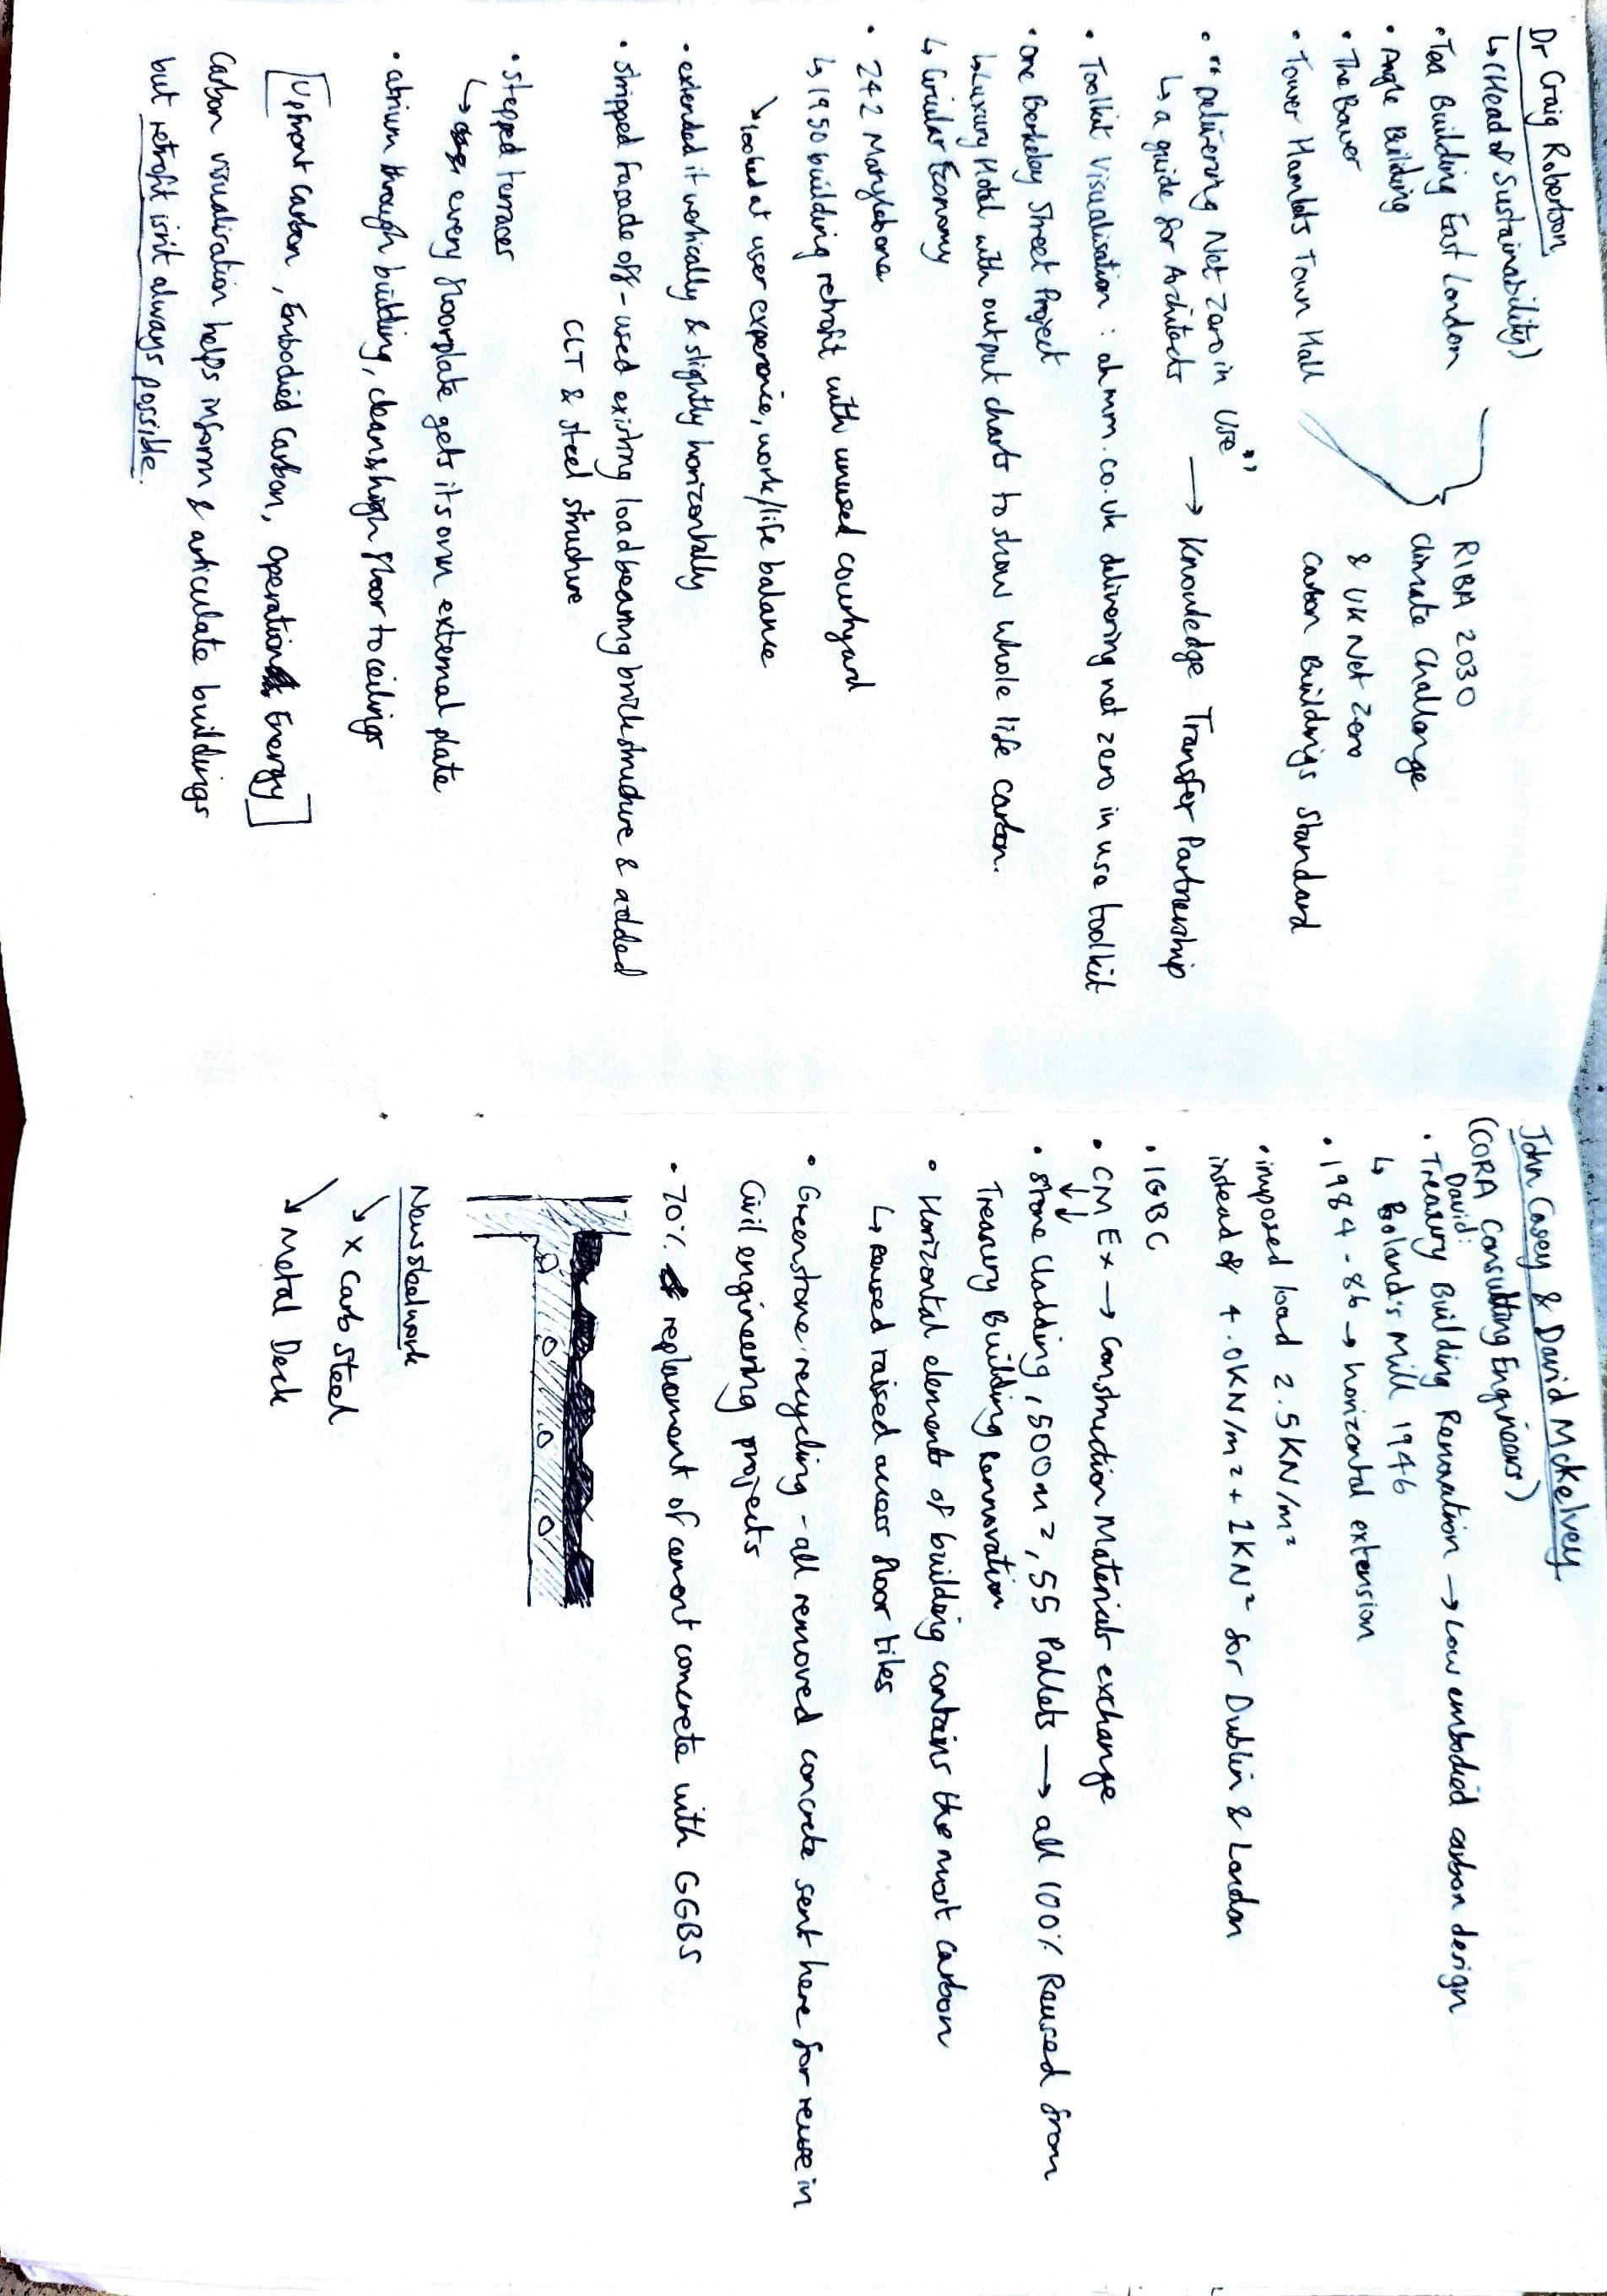 Dr Craig Robertson
↳ (Head of Sustainability)
• Tea Building East London
• Angle Building
• The Bower
• Tower Hamlets Town Hall
RIBA 2030
Climate Challenge
& UK Net Zero
Carbon Buildings Standard
• "Delivering Net Zero in Use" → Knowledge Transfer Partnership
↳ a guide for Architects
• Toolkit Visualisation : ahmm.co.uk delivering net zero in use toolkit
• One Berkeley Street Project
↳ Luxury Hotel with output charts to show whole life carbon.
↳ Circular Economy
• 242 Marylebone
↳ 1950 building retrofit with unused courtyard
↘ looked at user experience, work/life balance
• extended it vertically & slightly horizontally
• stripped facade off - used existing load bearing brick structure & added
CLT & steel structure
• stepped terraces
↳ every floorplate gets its own external plate
• atrium through building, clean & high floor to ceilings
[Upfront Carbon, Embodied Carbon, Operation Energy]
Carbon visualisation helps inform & articulate buildings
but retrofit isn't always possible.
John Casey & David McKelvey
(CORA Consulting Engineers)
David:
• Treasury Building Renovation → Low embodied carbon design
↳ Boland's Mill 1946
• 1984 - 86 → horizontal extension
• imposed load 2.5KN/m²
instead of 4.0KN/m² + 1KN² for Dublin & London
• IGBC
• CMEx → Construction Materials exchange
↓↓
• Stone Cladding, 500m², 55 Pallets → all 100% Reused from
Treasury Building Rennovation
• Horizontal elements of building contains the most carbon
↳ reused raised access floor tiles
• Greenstone recycling - all removed concrete sent here for reuse in
Civil engineering projects
• 70% replacement of cement concrete with GGBS
New steelwork
↘ x Carb Steel
↘ Metal Deck